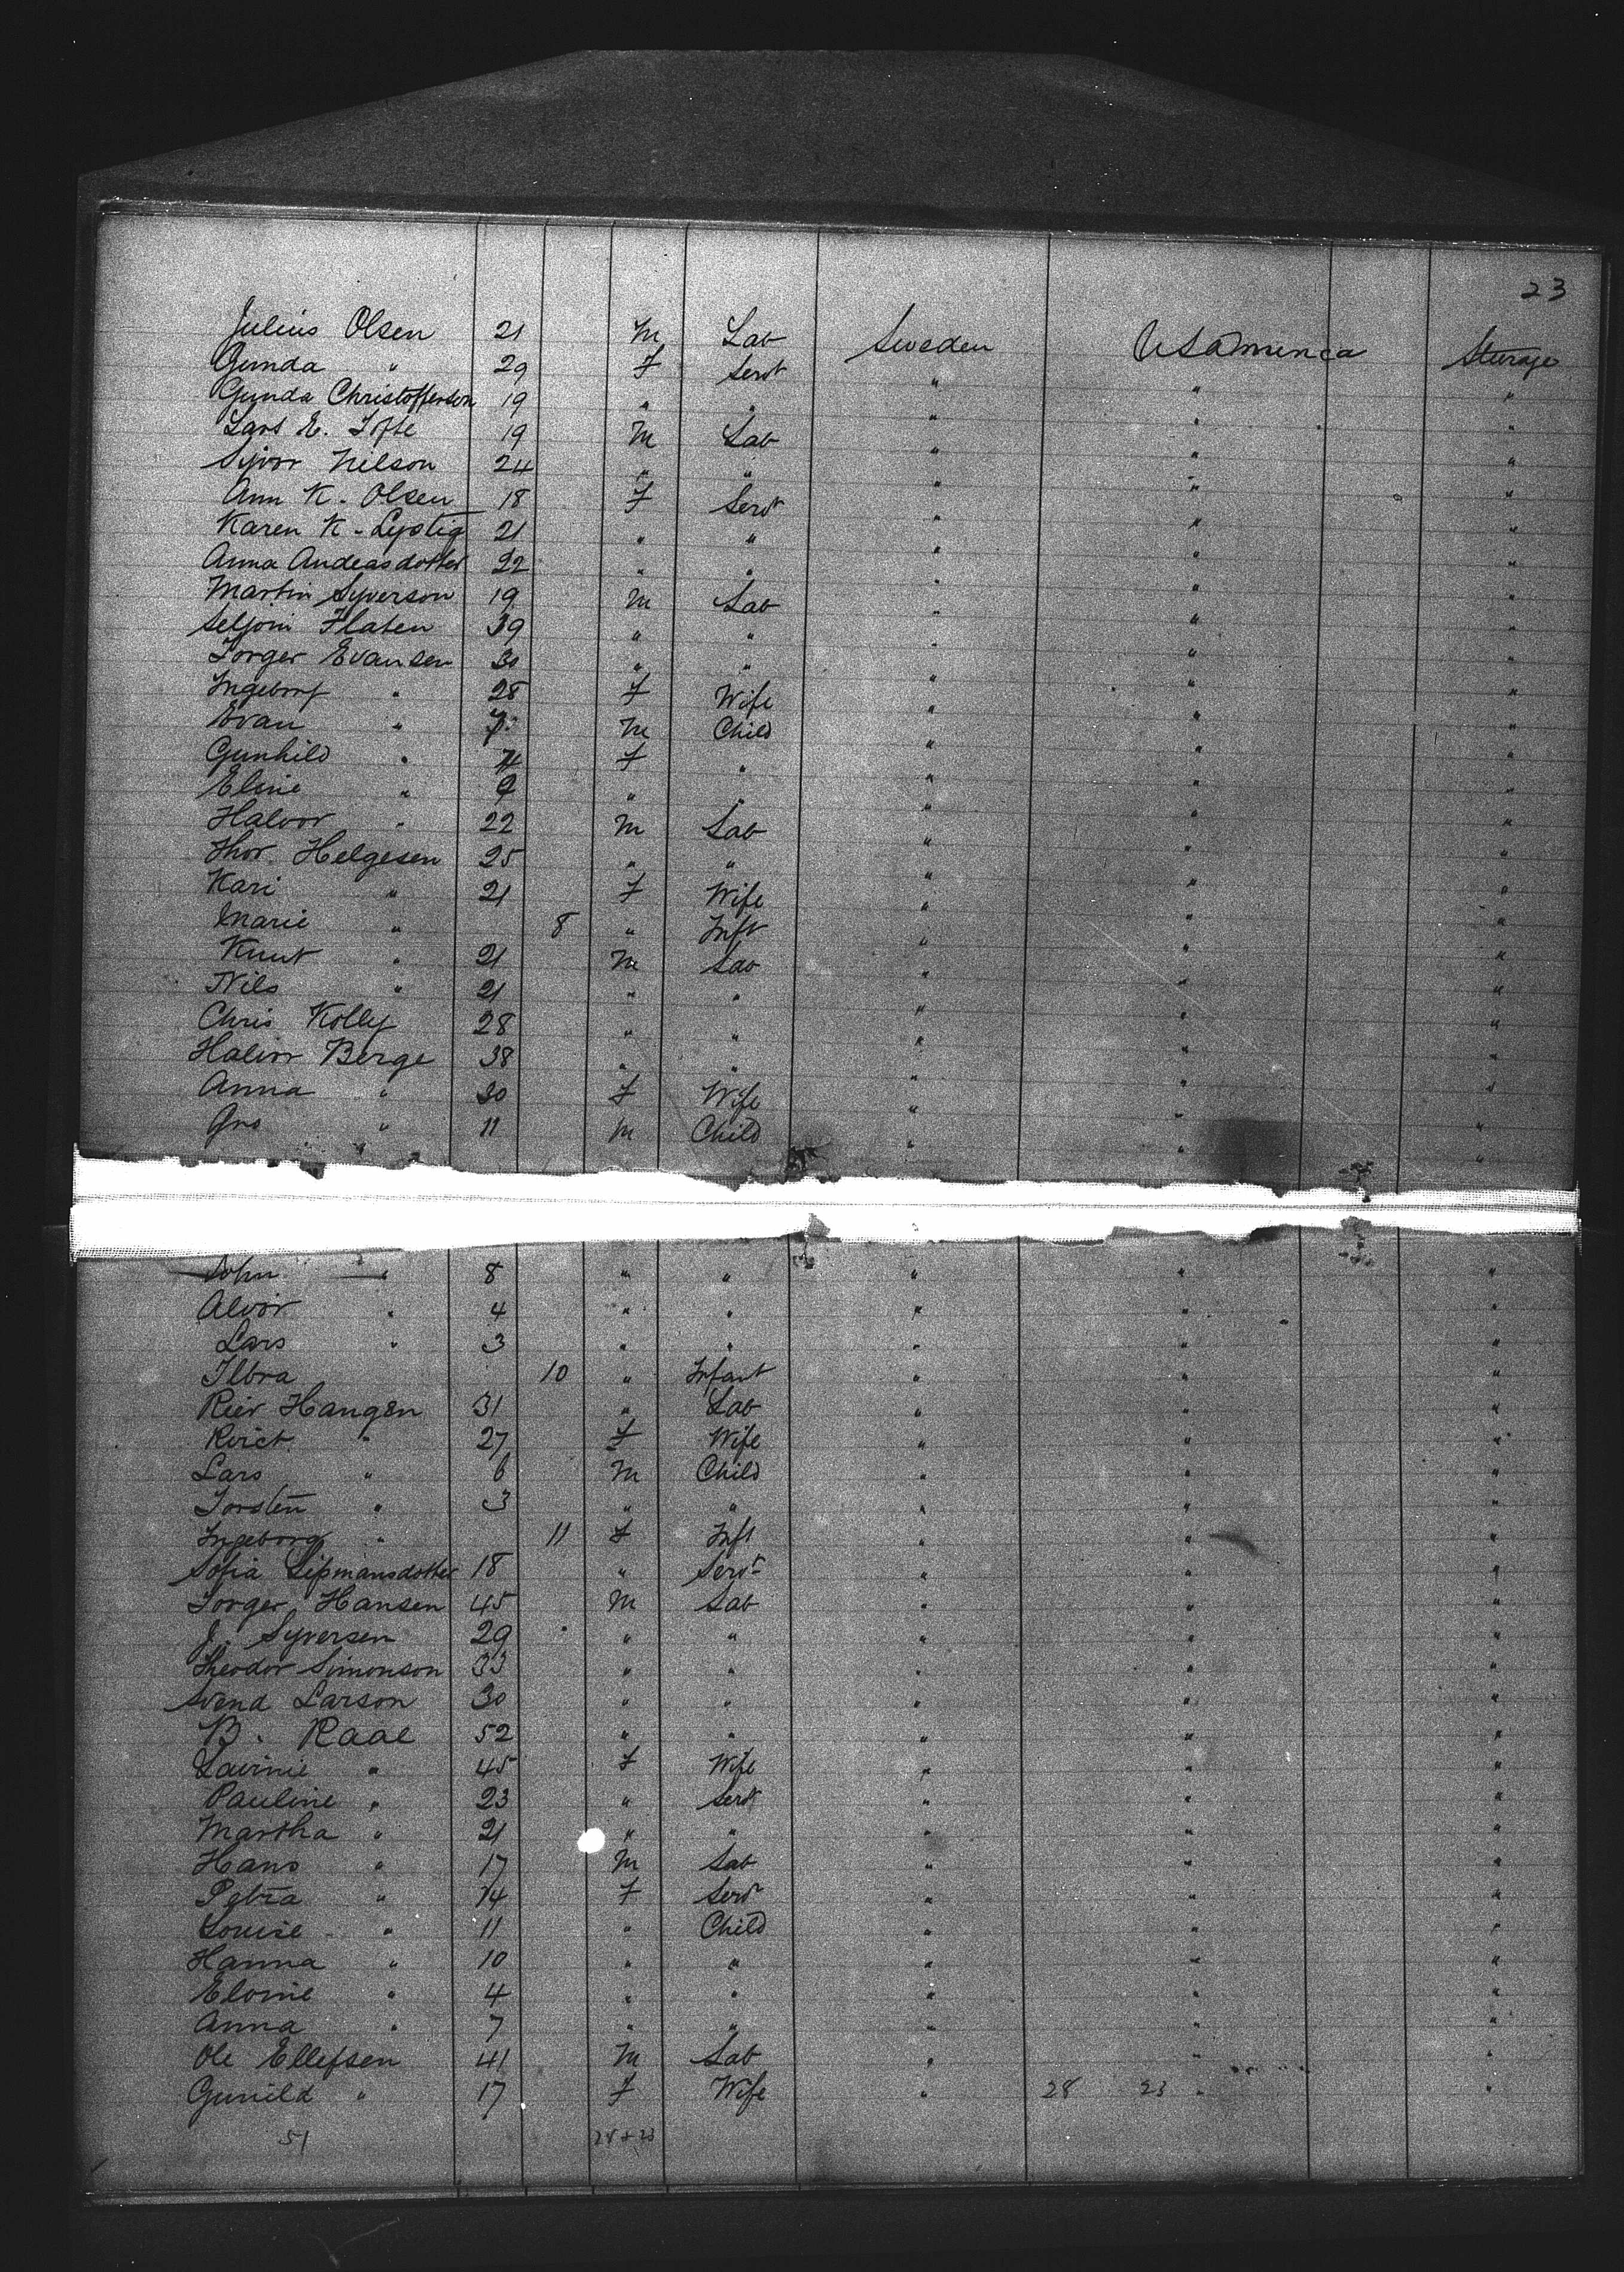 23
Julius Olsen 21 M Lab Sweden USAmerica Sterage
Gunda " 29 F Servt " " "
Gunda Christofferson 19 " " " " "
Lars E. Tofte 19 M Lab " " "
Syver Nilson 24 " " " " "
Ann K. Olsen 18 F Servt " " "
Karen K. Lystig 21 " " " " "
Anna Andeasdotter 22 " " " " "
Martin Syverson 19 M Lab " " "
Seljom Flaten 39 " " " " "
Torger Evansen 30 " " " " "
Ingeborg " 28 F Wife " " "
Evan " 7 M Child " " "
Gunhild " 4 F " " " "
Eline " 9 " " " " "
Halvor " 22 M Lab " " "
Thor Helgesen 25 " " " " "
Kari " 21 F Wife " " "
Marie " 8 " Inft " " "
Knut " 21 M Lab " " "
Nils " 21 " " " " "
Chris Kolly 28 " " " " "
Halvor Berge 38 " " " " "
Anna " 30 F Wife " " "
Gro " 11 M Child " " "
John " 8 " " " " "
Alvor " 4 " " " " "
Lars " 3 " " " " "
Ilbra 10 " Infant " " "
Rier Haugen 31 " Lab " " "
" 27 F Wife " " "
Lars " 6 M Child " " "
Torsten " 3 " " " " "
Ingeborg " 11 F Inft " " "
Sofia Sipmansdotter 18 " Servt " " "
Torger Hansen 45 M Lab " " "
J. Syversen 29 " " " " "
Theodor Simonson 33 " " " " "
Svend Larson 30 " " " " "
B. Raae 52 " " " " "
Lavinie " 45 F Wife " " "
Pauline " 23 " Servt " " "
Martha " 21 " " " " "
Hans " 17 M Lab " " "
Petra " 14 F Servt " " "
Louise " 11 " Child " " "
Hanna " 10 " " " " "
Elvine " 4 " " " " "
Anna " 7 " " " " "
Ole Ellefsen 41 M Lab " " "
Gunild " 17 F Wife " 28 23 " "
51 28 + 23